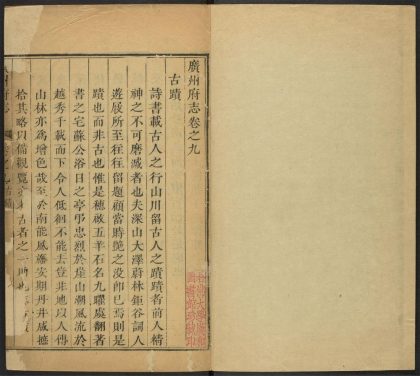 廣州府志卷之九
古蹟
詩書載古人之行山川留古人之蹟蹟者前人精
神之不可磨滅者也夫深山大澤蔚林鉅谷詞人
遊展所至往往留題顧當時艶之沒即已焉則是
蹟也而非古也惟是穗啟五羊石名九曜處翻著
書之宅蘇公浴日之亭弔忠烈於崖山溯風流於
越秀千載而下令人低徊不能去豈非地以人傳
山林亦為增色哉至於南能風旛安期丹井咸摭
拾其略以備觀覽 古者之一助也